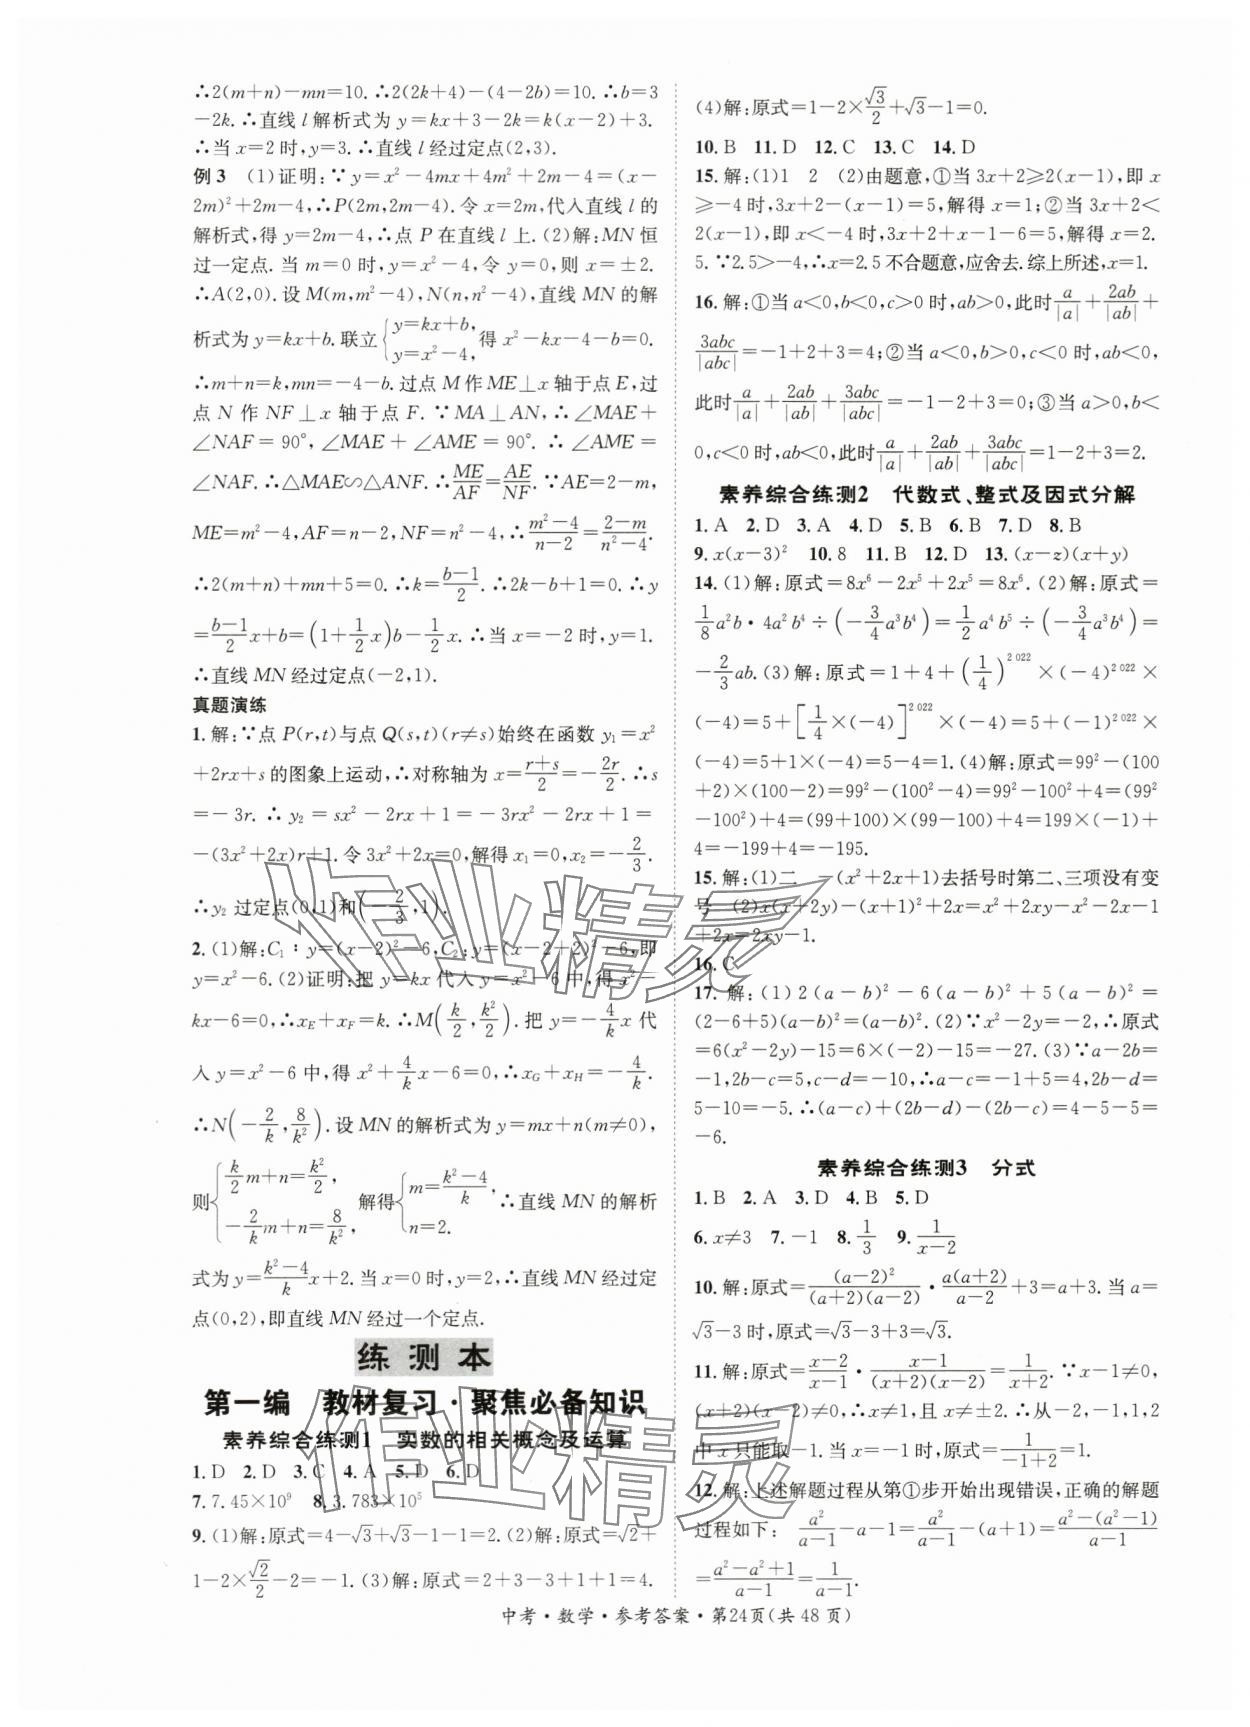 ∴2(m+n)-mn=10. ∴2(2k+4)-(4-2b)=10. ∴b=3
-2k. ∴直线 l 解析式为 y=kx+3-2k=k(x-2)+3.
∴当 x=2 时,y=3. ∴直线 l 经过定点(2,3).
例 3 (1)证明:∵y=x²-4mx+4m²+2m-4=(x-
2m)²+2m-4,∴P(2m,2m-4). 令 x=2m,代入直线 l 的
解析式,得 y=2m-4,∴点 P 在直线 l 上. (2)解:MN 恒
过一定点. 当 m=0 时,y=x²-4,令 y=0,则 x=±2.
∴A(2,0). 设 M(m,m²-4),N(n,n²-4),直线 MN 的解
析式为 y=kx+b. 联立{y=kx+b, y=x²-4,得 x²-kx-4-b=0.
∴m+n=k,mn=-4-b. 过点 M 作 ME⊥x 轴于点 E,过
点 N 作 NF⊥x 轴于点 F. ∵MA⊥AN, ∴∠MAE+
∠NAF=90°, ∠MAE+∠AME=90°. ∴∠AME=
∠NAF. ∴△MAE∽△ANF. ∴ME/AF=AE/NF. ∵AE=2-m,
ME=m²-4,AF=n-2,NF=n²-4,∴(m²-4)/(n-2)=(2-m)/(n²-4).
∴2(m+n)+mn+5=0. ∴k=(b-1)/2. ∴2k-b+1=0. ∴y
=(b-1)/2 x+b=(1+1/2 x)b-1/2 x. ∴当 x=-2 时,y=1.
∴直线 MN 经过定点(-2,1).
真题演练
1. 解:∵点 P(r,t)与点 Q(s,t)(r≠s)始终在函数 y₁=x²
+2rx+s 的图象上运动,∴对称轴为 x=(r+s)/2=-2r/2. ∴s
=-3r. ∴y₂=sx²-2rx+1=-3rx²-2rx+1=
-(3x²+2x)r+1. 令 3x²+2x=0,解得 x₁=0,x₂=-2/3.
∴y₂ 过定点(0,1)和(-2/3,1).
2. (1)解:C₁:y=(x-2)²-6,C₂:y=(x-2+2)²-6,即
y=x²-6. (2)证明:把 y=kx 代入 y=x²-6 中,得 x²-
kx-6=0,∴x_E+x_F=k. ∴M(k/2,k²/2). 把 y=-4/k x 代
入 y=x²-6 中,得 x²+4/k x-6=0,∴x_G+x_H=-4/k.
∴N(-2/k,8/k²). 设 MN 的解析式为 y=mx+n(m≠0),
则{k/2 m+n=k²/2, -2/k m+n=8/k², 解得{m=(k²-4)/k, n=2. ∴直线 MN 的解析
式为 y=(k²-4)/k x+2. 当 x=0 时,y=2,∴直线 MN 经过定
点(0,2),即直线 MN 经过一个定点.
练测本
第一编 教材复习·聚焦必备知识
素养综合练测1 实数的相关概念及运算
1. D 2. D 3. C 4. A 5. D 6. D
7. 7.45×10⁹ 8. 3.783×10⁵
9. (1)解:原式=4-√3+√3-1-1=2. (2)解:原式=√2+
1-2×√2/2-2=-1. (3)解:原式=2+3-3+1+1=4.
(4)解:原式=1-2×√3/2+√3-1=0.
10. B 11. D 12. C 13. C 14. D
15. 解:(1)1 2 (2)由题意,①当 3x+2≥2(x-1),即 x
≥-4 时,3x+2-(x-1)=5,解得 x=1;②当 3x+2<
2(x-1),即 x<-4 时,3x+2+x-1-6=5,解得 x=2.
5. ∵2.5>-4,∴x=2.5 不合题意,应舍去. 综上所述,x=1.
16. 解:①当 a<0,b<0,c>0 时,ab>0,此时 a/|a|+2ab/|ab|+
3abc/|abc|=-1+2+3=4;②当 a<0,b>0,c<0 时,ab<0,
此时 a/|a|+2ab/|ab|+3abc/|abc|=-1-2+3=0;③当 a>0,b<
0,c<0 时,ab<0,此时 a/|a|+2ab/|ab|+3abc/|abc|=1-2+3=2.
素养综合练测2 代数式、整式及因式分解
1. A 2. D 3. A 4. D 5. B 6. B 7. D 8. B
9. x(x-3)² 10. 8 11. B 12. D 13. (x-z)(x+y)
14. (1)解:原式=8x⁶-2x⁵+2x⁵=8x⁶. (2)解:原式=
1/8 a²b·4a²b⁴÷(-3/4 a³b⁴)=1/2 a⁴b⁵÷(-3/4 a³b⁴)=
-2/3 ab. (3)解:原式=1+4+(1/4)^2 022×(-4)^2 022×
(-4)=5+[1/4×(-4)]^2 022×(-4)=5+(-1)^2 022×
(-4)=5+1×(-4)=5-4=1. (4)解:原式=99²-(100
+2)×(100-2)=99²-(100²-4)=99²-100²+4=(99²
-100²)+4=(99+100)×(99-100)+4=199×(-1)+
4=-199+4=-195.
15. 解:(1)二 -(x²+2x+1)去括号时第二、三项没有变
号 (2)x(x+2y)-(x+1)²+2x=x²+2xy-x²-2x-1
+2x=2xy-1.
16. C
17. 解:(1)2(a-b)²-6(a-b)²+5(a-b)²=
(2-6+5)(a-b)²=(a-b)². (2)∵x²-2y=-2,∴原式
=6(x²-2y)-15=6×(-2)-15=-27. (3)∵a-2b=
-1,2b-c=5,c-d=-10,∴a-c=-1+5=4,2b-d=
5-10=-5. ∴(a-c)+(2b-d)-(2b-c)=4-5-5=
-6.
素养综合练测3 分式
1. B 2. A 3. D 4. B 5. D
6. x≠3 7. -1 8. 1/3 9. 1/(x-2)
10. 解:原式=(a-2)²/((a+2)(a-2))·a(a+2)/(a-2)+3=a+3. 当 a=
√3-3 时,原式=√3-3+3=√3.
11. 解:原式=(x-2)/(x-1)·(x-1)/((x+2)(x-2))=1/(x+2). ∵x-1≠0,
(x+2)(x-2)≠0,∴x≠1,且 x≠±2. ∴从-2,-1,1,2
中 x 只能取-1. 当 x=-1 时,原式=1/(-1+2)=1.
12. 解:上述解题过程从第①步开始出现错误,正确的解题
过程如下: a²/(a-1)-a-1=a²/(a-1)-(a+1)=(a²-(a²-1))/(a-1)
=(a²-a²+1)/(a-1)=1/(a-1).
中考·数学·参考答案·第24页(共 48 页)
作业精灵
作业精灵